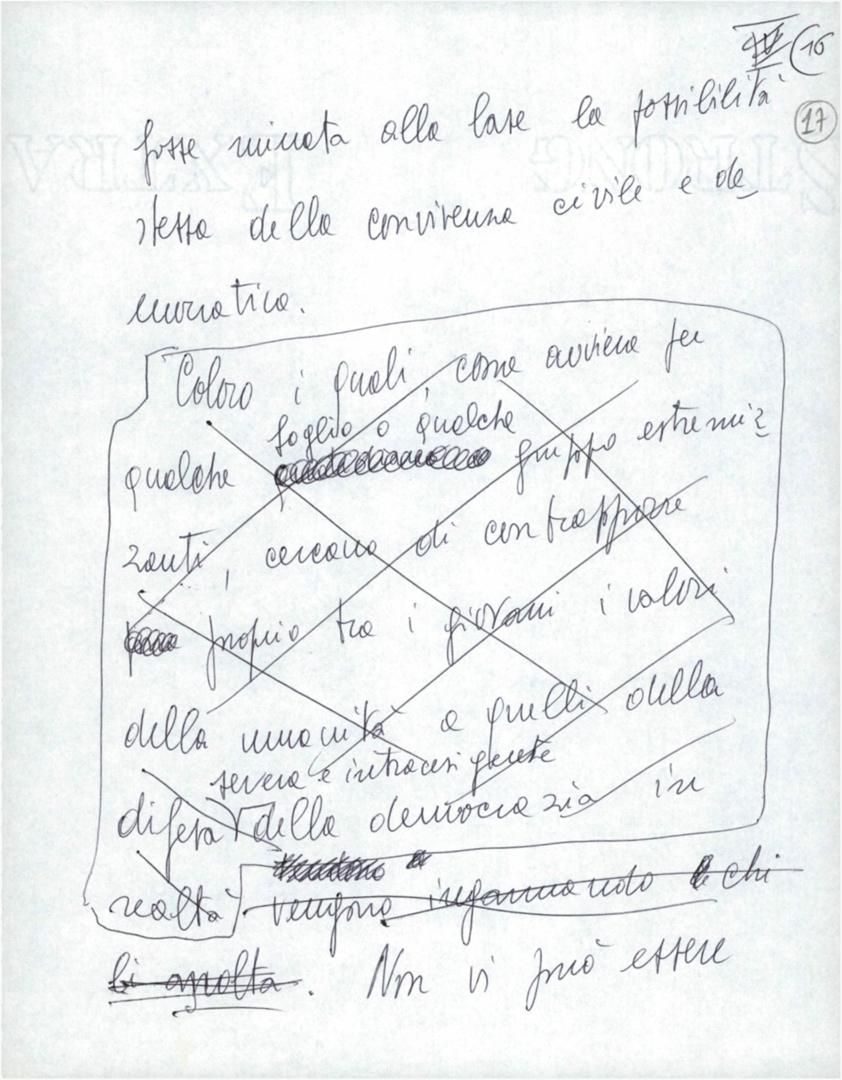 IV 16
17
fosse minata alla base la possibilità
stessa della convivenza civile e de
mocratica.
Coloro i quali, come avviene per
foglio o qualche
qualche gruppo estremiz
zanti, cercano di contrapporre
proprio tra i giovani i valori
della umanità a quelli della
severa e intransigente
difesa della democrazia in
realtà vengono ingannando chi
li ascolta. Non vi può essere